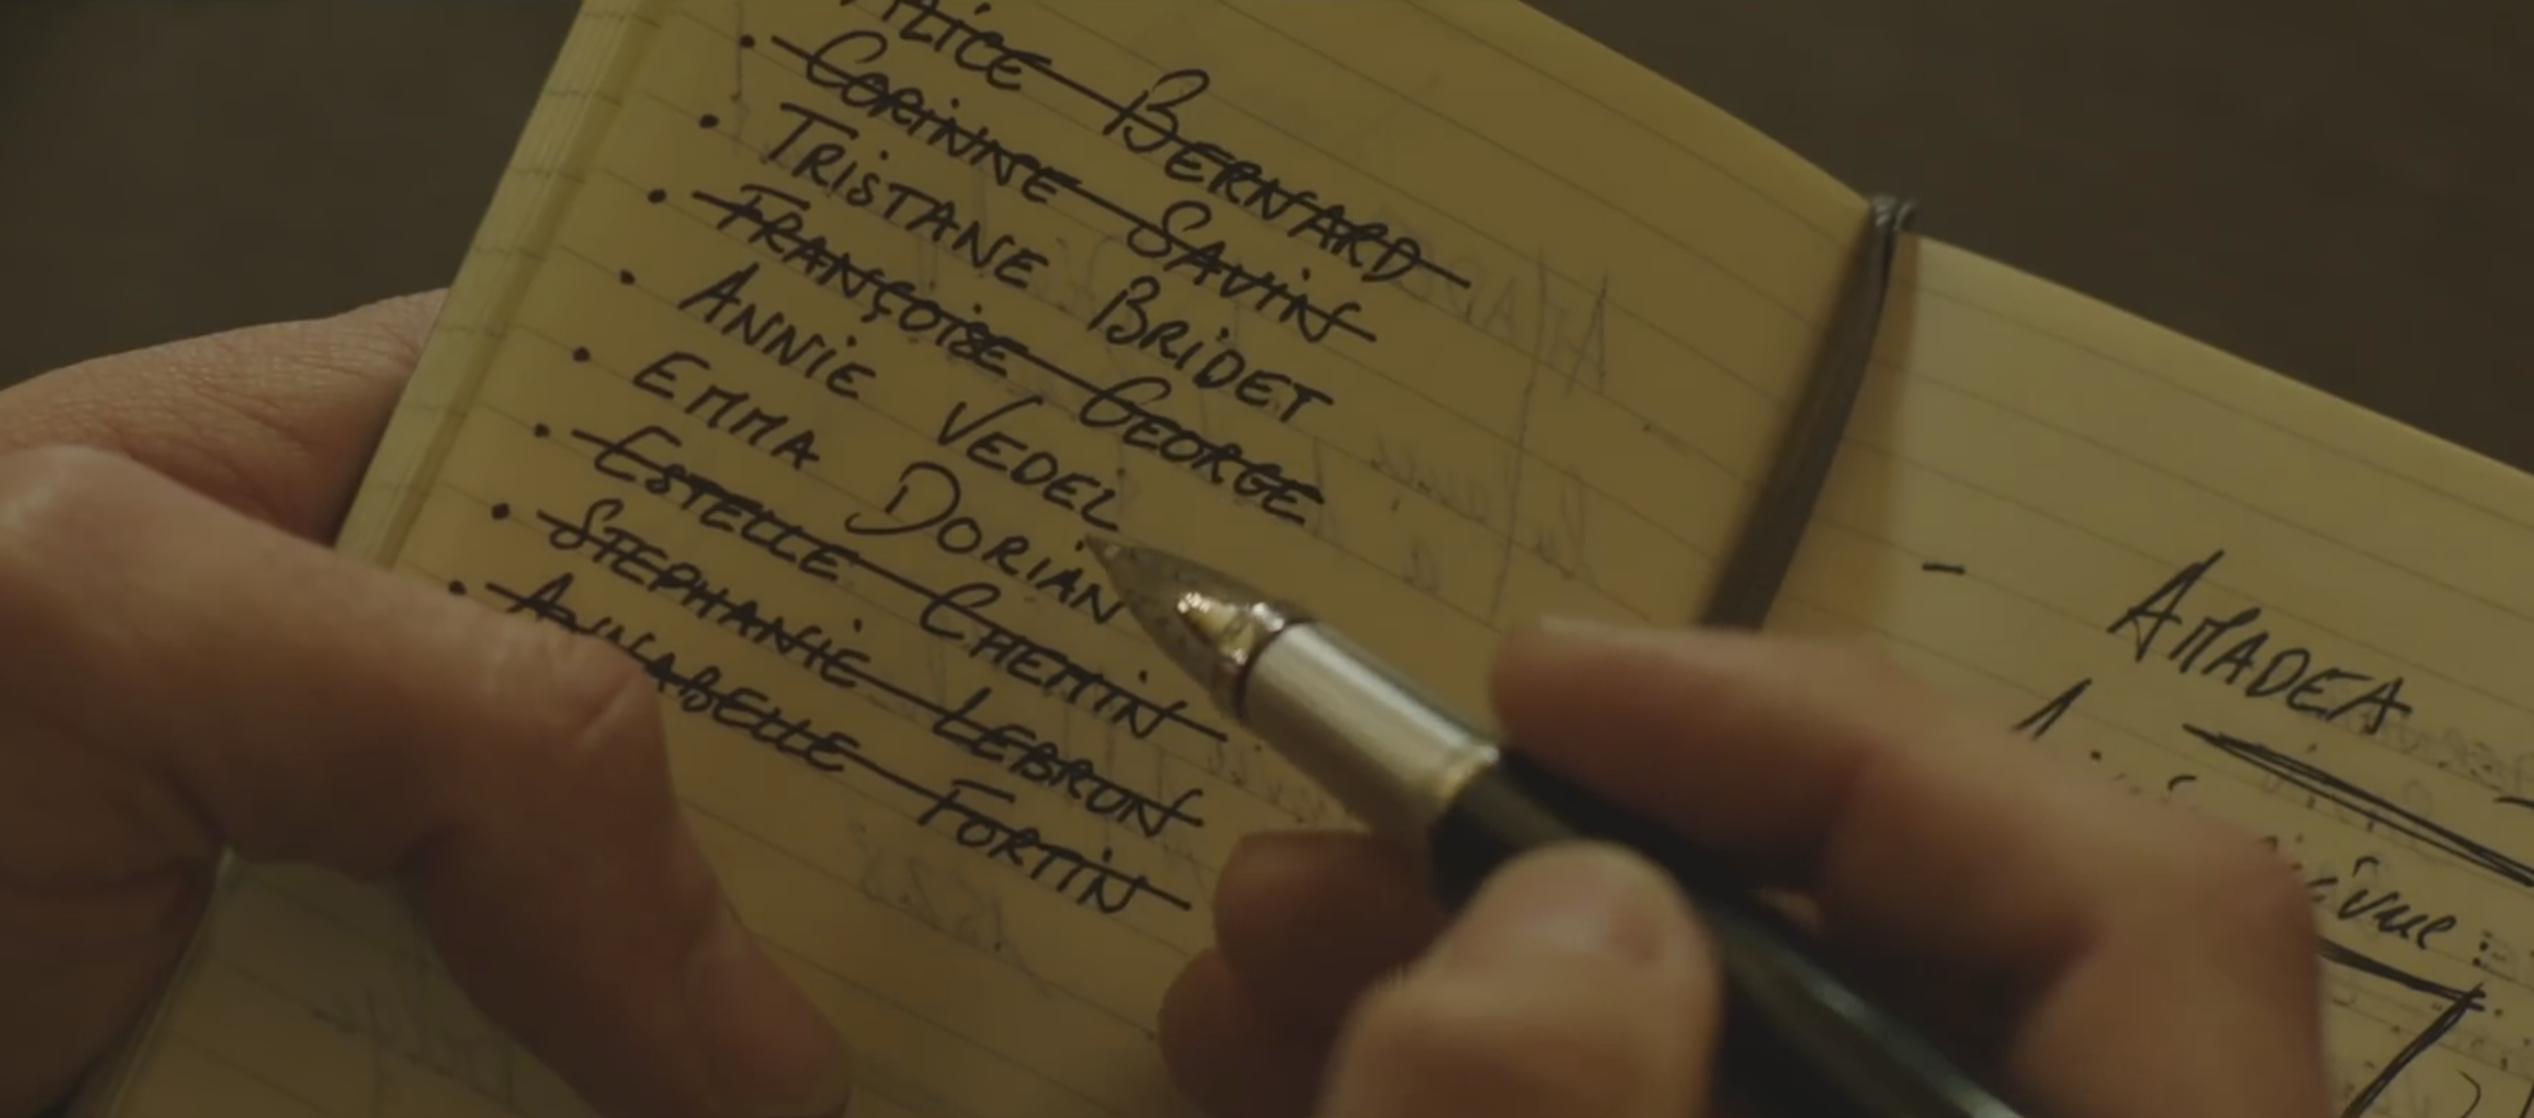 ALiCE BERNARD
• CORiNNE SAViN
• TRiSTANE BRiDET
• FRANÇOiSE GEORGE
• ANNiE VEDEL
• EMMA DORiAN
• ESTELLE CHEMiN
• STEPHANiE LEBRUN
• ANNABELLE FORTiN
- AMADEA